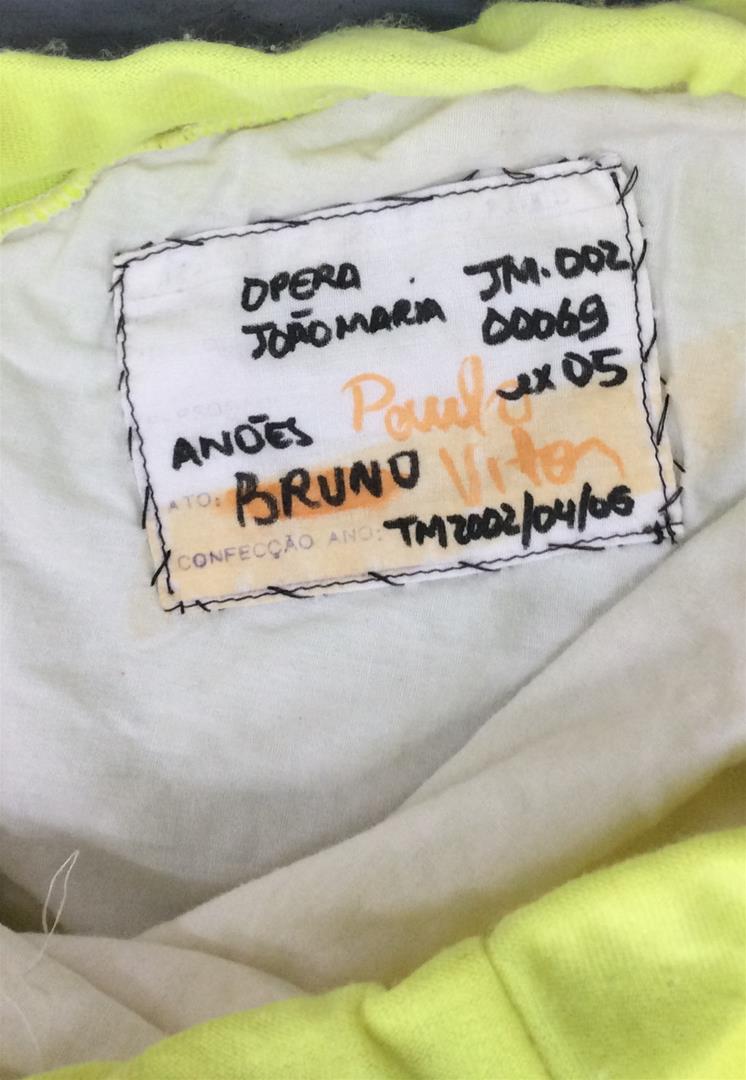 OPERA JM.002
JOÃO MARIA 00069
ex 05
ANÕES Paulo
ATO: BRUNO Vitor
CONFECÇÃO ANO: TM2002/04/06